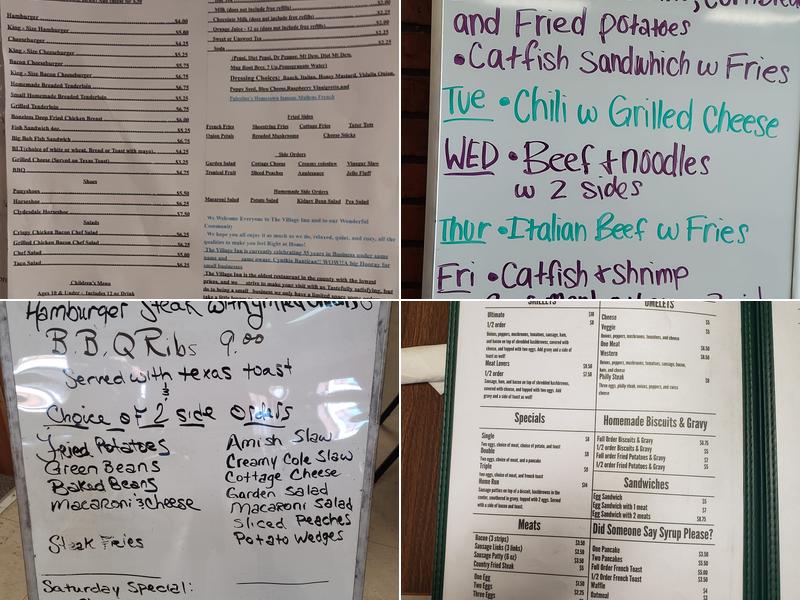 Hamburger $4.00
King - Size Hamburger $5.00
Cheeseburger $4.25
King - Size Cheeseburger $5.25
Bacon Cheeseburger $5.75
King - Size Bacon Cheeseburger $6.75
Homemade Breaded Tenderloin $6.75
Small Homemade Breaded Tenderloin $5.25
Grilled Tenderloin $6.75
Boneless Deep Fried Chicken Breast $6.00
Fish Sandwich $5.25
Big Bob Fish Sandwich $6.75
BLT(choice of white or wheat, Bread or Toast with mayo) $4.25
Grilled Cheese (Served on Texas Toast) $3.25
BBQ $4.75
Shoes
Ponyshoes $5.50
Horseshoe $6.25
Clydesdale Horseshoe $7.50
Salads
Crispy Chicken Bacon Chef Salad $6.25
Grilled Chicken Bacon Chef Salad $6.25
Chef Salad $5.00
Taco Salad $6.25
Children's Menu
Ages 10 & Under - Includes 12 oz Drink
Milk (does not include free refills) $2.00
Chocolate Milk (does not include free refills)
Orange Juice - 12 oz (does not include free refills)
Sweet or Unsweet Tea
Soda
(Pepsi, Diet Pepsi, Dr Pepper, Mt Dew, Diet Mt Dew,
Mug Root Beer, 7 Up, Pomegranate Water)
Dressing Choices: Ranch, Italian, Honey Mustard, Vidalia Onion,
Poppy Seed, Bleu Cheese, Raspberry Vinaigrette, and
Palestine's Hometown famous Mullens French
Fried Sides
French Fries Shoestring Fries Cottage Fries Tater Tots
Onion Petals Breaded Mushrooms Cheese Sticks
Side Orders
Garden Salad Cottage Cheese Creamy coleslaw Vinegar Slaw
Tropical Fruit Sliced Peaches Applesauce Jello Fluff
Homemade Side Orders
Macaroni Salad Potato Salad Kidney Bean Salad Pea Salad
We Welcome Everyone to The Village Inn and to our Wonderful
Community!
We hope you all enjoy it as much as we do, relaxed, quiet, and cozy, all the
qualities to make you feel Right at Home!
The Village Inn is currently celebrating 35 years in Business under same
name and same owner, Cynthia
small businesses
The Village Inn is the oldest restaurant in the county with the lowest
prices, and we strive to make your visit with us Tastefully satisfying, but
and Fried potatoes
• Catfish Sandwhich w Fries
Tue • Chili w Grilled Cheese
WED • Beef + noodles
w 2 sides
Thur • Italian Beef w Fries
Fri • Catfish & shrimp
Hamburger Steak with
B.B.Q Ribs 9.00
Served with texas toast
&
Choice of 2 side Orders
Fried Potatoes
Green Beans
Baked Beans
Macaroni & Cheese
Steak Fries
Amish Slaw
Creamy Cole Slaw
Cottage Cheese
Garden Salad
Macaroni Salad
Sliced Peaches
Potato Wedges
Saturday Special:
SKILLETS
Ultimate
1/2 order $8
Onions, peppers, mushrooms, tomatoes, sausage, ham,
and bacon on top of shredded hashbrowns, covered with
cheese, and topped with two eggs. Add gravy and a side of
toast as well!
Meat Lovers $9.50
1/2 order $7.50
Sausage, ham, and bacon on top of shredded hashbrowns,
covered with cheese, and topped with two eggs. Add
gravy and a side of toast as well!
Specials
Single $8
Two eggs, choice of meat, choice of potato, and toast
Double $9
Two eggs, choice of meat, and a pancake
Triple $9
Two eggs, choice of meat, and french toast
Home Run
Sausage patties on top of a biscuit, hashbrowns in the
center, smothered in gravy, topped with 2 eggs. Served
with a side of bacon and toast.
Meats
Bacon (3 strips) $3.50
Sausage Links (3 links) $3.50
Sausage Patty (6 oz) $3.50
Country Fried Steak $5
One Egg $1.50
Two Eggs $2.25
Three Eggs
OMELETS
Cheese
Veggie
Onions, peppers, mushrooms, tomatoes, and cheese
One Meat $8.50
Western $8.50
Onions, peppers, mushrooms, tomatoes, sausage, bacon,
ham, and cheese
Philly Steak
Three eggs, philly steak, onions, peppers, and swiss
cheese
Homemade Biscuits & Gravy
Full Order Biscuits & Gravy $6.75
1/2 order Biscuits & Gravy $5
Full order Fried Potatoes & Gravy $7
1/2 order Fried Potatoes & Gravy $5
Sandwiches
Egg Sandwich $5
Egg Sandwich with 1 meat $7
Egg Sandwich with 2 meats $8.75
Did Someone Say Syrup Please?
One Pancake $3.50
Two Pancakes $5.50
Full Order French Toast $5.00
1/2 Order French Toast $3.50
Waffle $4
Oatmeal